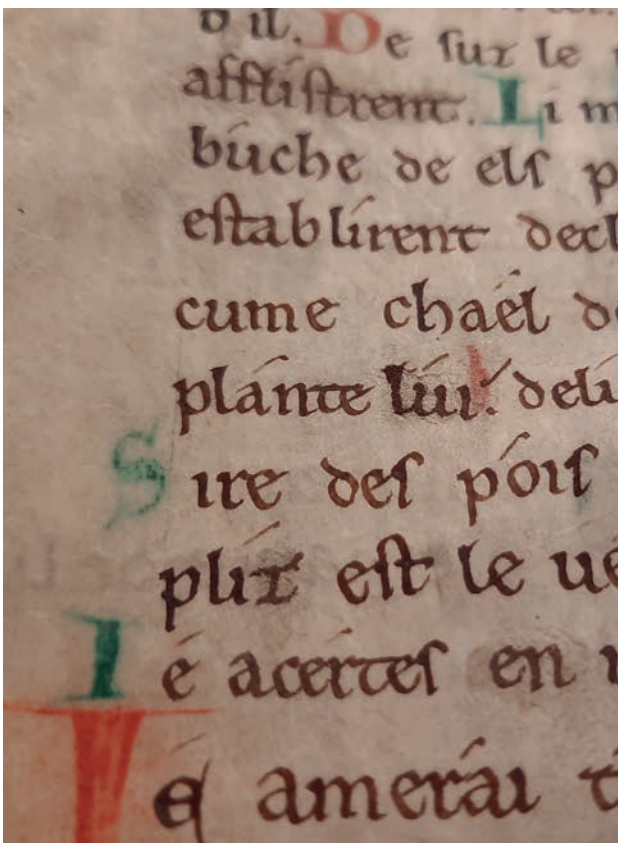 d il. De sur le
afflistrent. Li m
buche de els p
establirent decl
cume chaél de
plánte lúi. deli
Sire des póis
plír est le ué
Ié acertes en
Ie amerái t